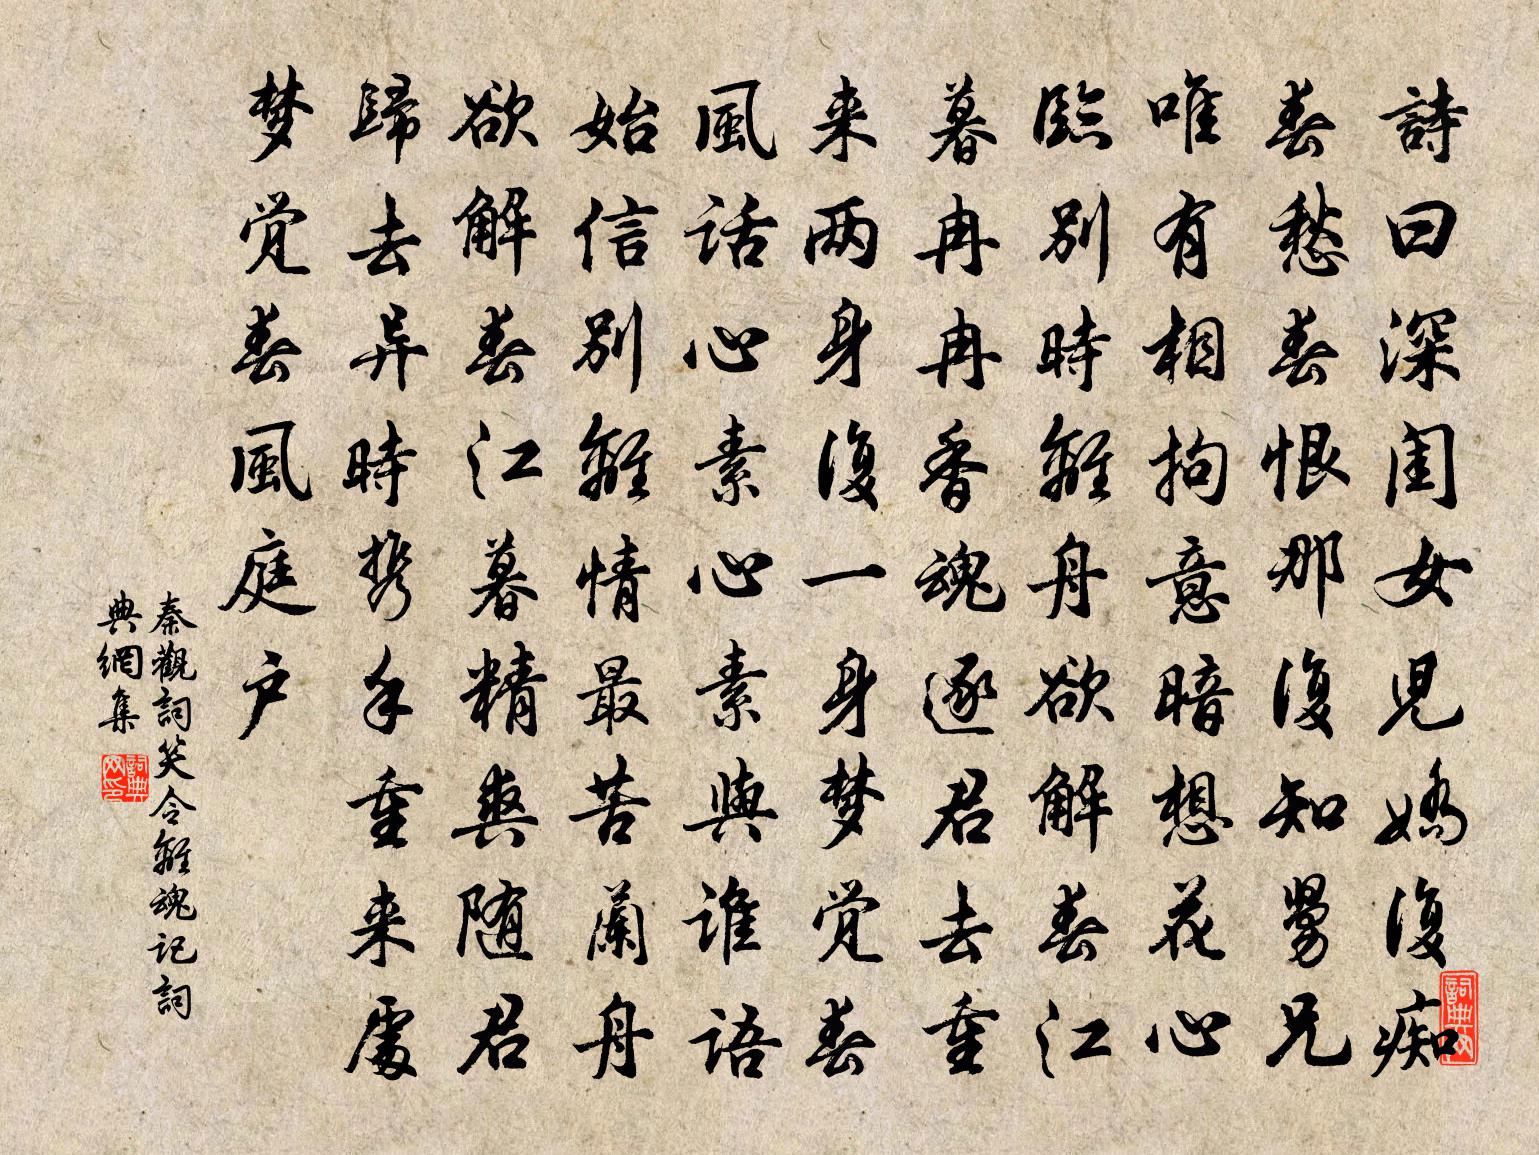 詩曰深闺女児嬌復痴
春愁春恨那復知舅兄
唯有相拘意暗想花心
臨别時難舟欲解春江
暮冉冉香魂逐君去重
来两身復一身梦觉春
風話心素心素與誰語
始信别離情最苦蘭舟
欲解春江暮精爽随君
歸去异時携手重来處
梦觉春風庭户
秦觀詞笑令離魂记詞
典網集
詞典网
詞典网印